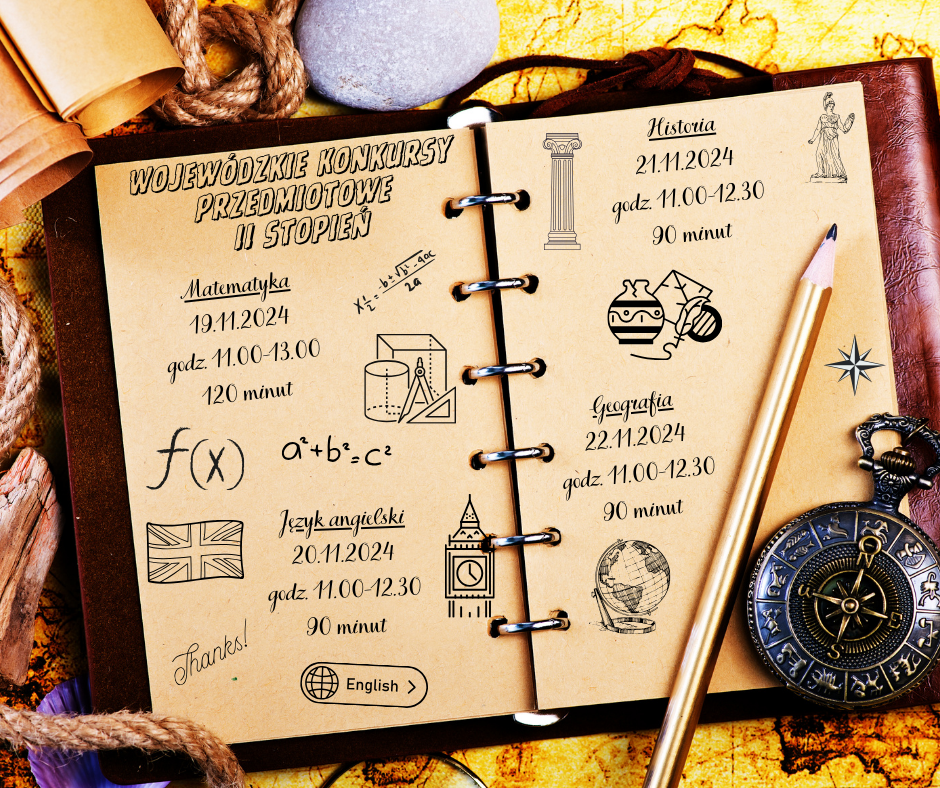 WOJEWÓDZKIE KONKURSY
PRZEDMIOTOWE
II STOPIEŃ
Matematyka
19.11.2024
godz. 11.00-13.00
120 minut
x½=-b+√b²-4ac
2a
f(x)
a²+b²=c²
Język angielski
20.11.2024
godz. 11.00-12.30
90 minut
Thanks!
English >
Historia
21.11.2024
godz. 11.00-12.30
90 minut
Geografia
22.11.2024
godz. 11.00-12.30
90 minut
N
S